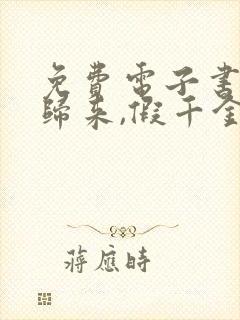 免費電子書
歸來,假千金
蔣應時